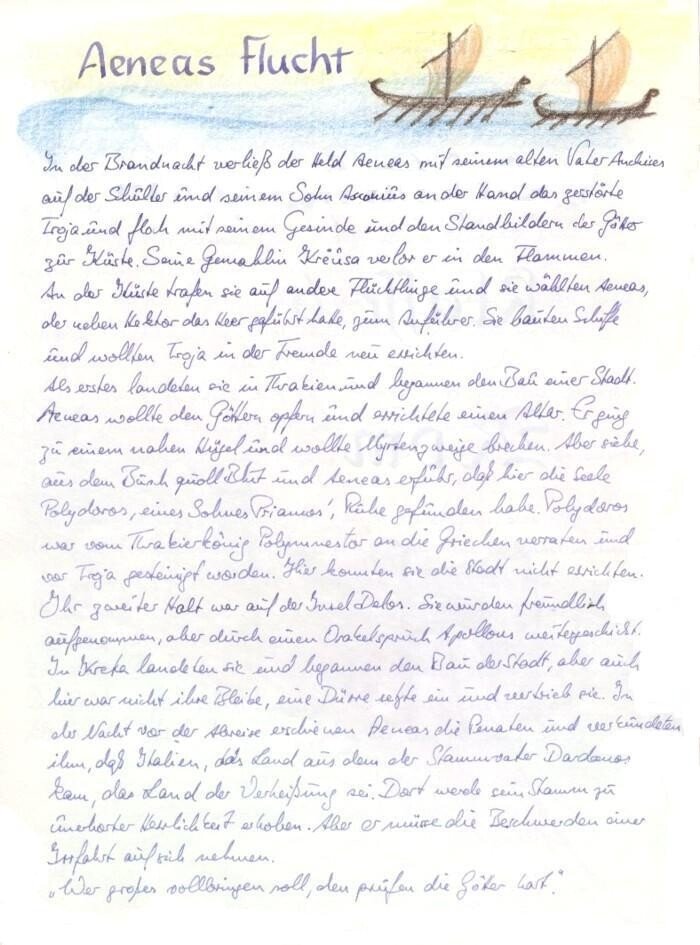 Aeneas Flucht
In der Brandnacht verließ der Held Aeneas mit seinem alten Vater Anchises
auf der Schulter und seinem Sohn Ascanius an der Hand das zerstörte
Troja und floh mit seinem Gesinde und den Standbildern der Götter
zur Küste. Seine Gemahlin Krëusa verlor er in den Flammen.
An der Küste trafen sie auf andere Flüchtlinge und sie wählten Aeneas,
der neben Hektor das Heer geführt hatte, zum Anführer. Sie bauten Schiffe
und wollten Troja in der Fremde neu errichten.
Als erstes landeten sie in Thrakien und begannen den Bau einer Stadt.
Aeneas wollte den Göttern opfern und errichtete einen Altar. Er ging
zu einem nahen Hügel und wollte Myrtenzweige brechen. Aber siehe,
aus dem Busch quoll Blut und Aeneas erfuhr, daß hier die Seele
Polydoros, eines Sohnes Priamos', Ruhe gefunden habe. Polydoros
war vom Thrakierkönig Polymnestor an die Griechen verraten und
vor Troja gesteinigt worden. Hier konnten sie die Stadt nicht errichten.
Ihr zweiter Halt war auf der Insel Delos. Sie wurden freundlich
aufgenommen, aber durch einen Orakelspruch Apollons weitergeschickt.
In Kreta landeten sie und begannen den Bau der Stadt, aber auch
hier war nicht ihre Bleibe, eine Dürre setzte ein und vertrieb sie. In
der Nacht vor der Abreise erschienen Aeneas die Penaten und verkündeten
ihm, daß Italien, das Land aus dem der Stammvater Dardanos
kam, das Land der Verheißung sei. Dort werde sein Stamm zu
unerhörter Herrlichkeit erhoben. Aber er müsse die Beschwerden einer
Irrfahrt auf sich nehmen.
„Wer großes vollbringen soll, den prüfen die Götter hart."